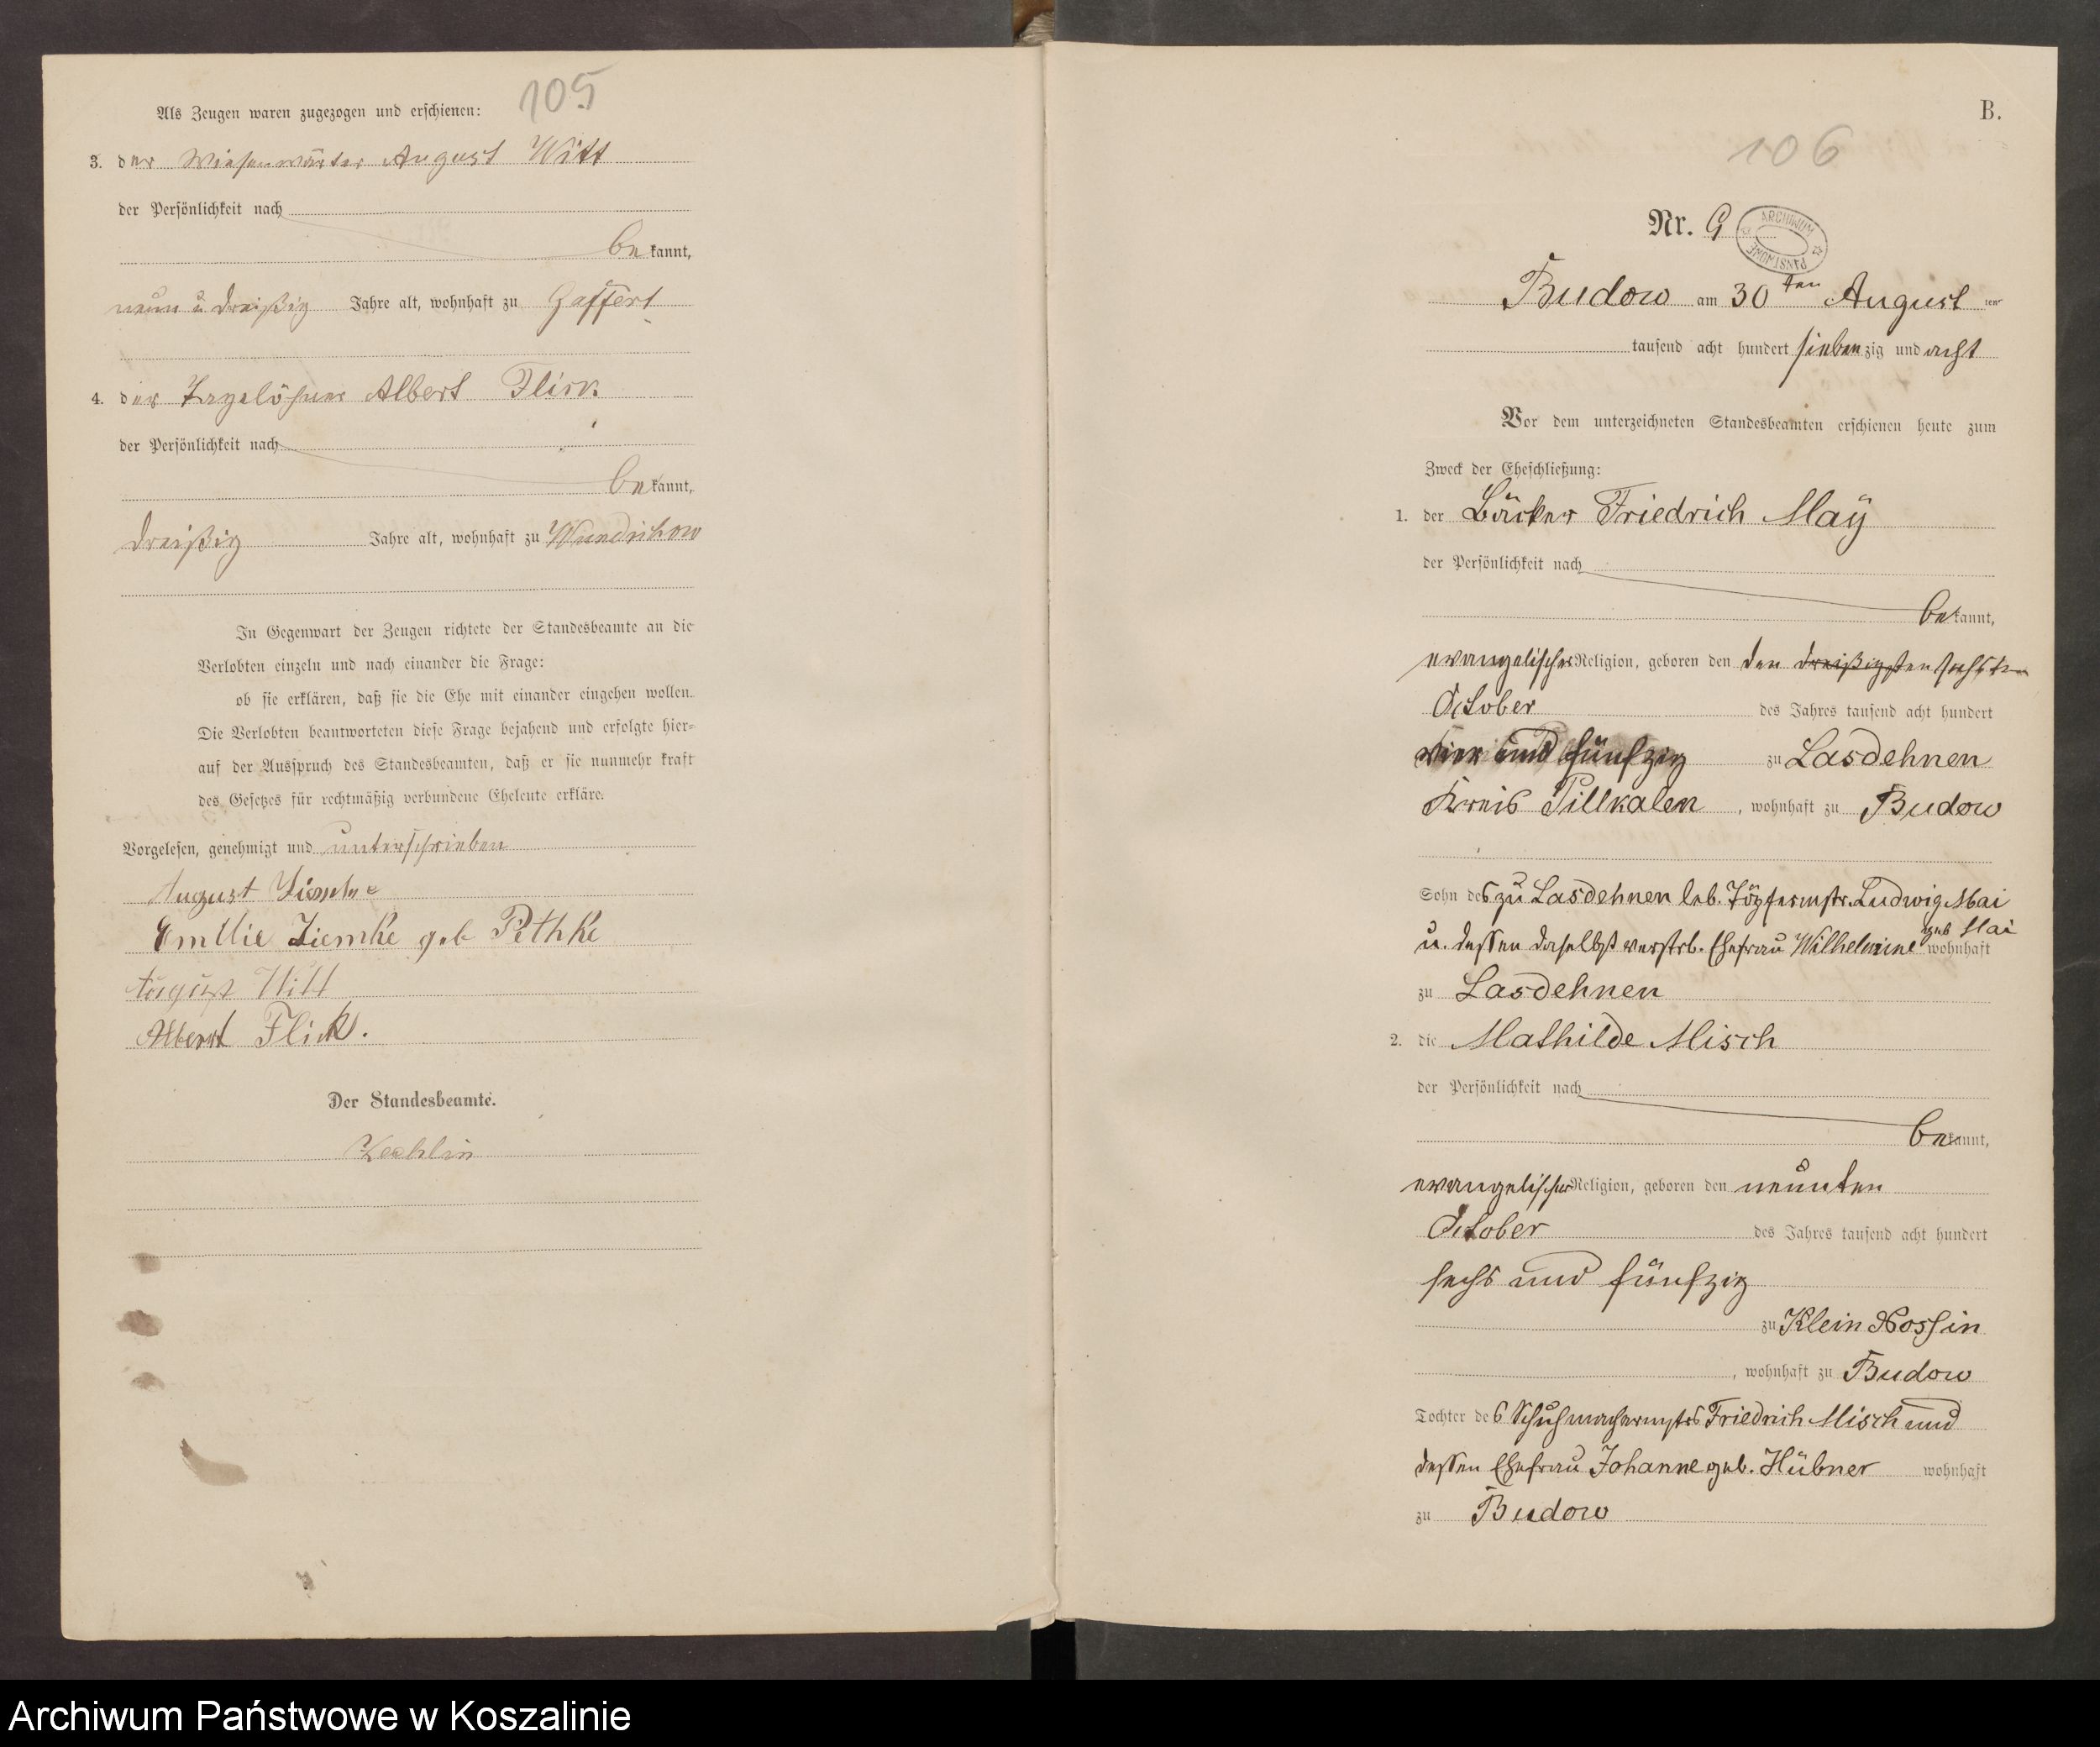 105
Als Zeugen waren zugezogen und erschienen:
3. der Wiesenwärter August Witt
der Persönlichkeit nach
bekannt,
neun u dreißig Jahre alt, wohnhaft zu Gaffert
4. der Tagelöhner Albert Flick
der Persönlichkeit nach
bekannt,
dreißig Jahre alt, wohnhaft zu Wundichow
In Gegenwart der Zeugen richtete der Standesbeamte an die
Verlobten einzeln und nach einander die Frage:
ob sie erklären, daß sie die Ehe mit einander eingehen wollen.
Die Verlobten beantworteten diese Frage bejahend und erfolgte hier-
auf der Ausspruch des Standesbeamten, daß er sie nunmehr kraft
des Gesetzes für rechtmäßig verbundene Eheleute erkläre.
Vorgelesen, genehmigt und unterschrieben
August Ziemke
Emilie Ziemke geb Pethke
August Witt
Albert Flick.
Der Standesbeamte.
B.
106
Nr. 9
ARCHIWUM PAŃSTWOWE
Budow am 30ten August
tausend acht hundert siebenzig und acht
Vor dem unterzeichneten Standesbeamten erschienen heute zum
Zweck der Eheschließung:
1. der Bäcker Friedrich Maÿ
der Persönlichkeit nach
bekannt,
evangelischer Religion, geboren den den dreißigsten sechsten
October des Jahres tausend acht hundert
vier und fünfzig zu Lasdehnen
Kreis Pillkalen, wohnhaft zu Budow
Sohn des zu Lasdehnen leb. Töpfermstr. Ludwig Mai
u. dessen daselbst verstrb. Ehefrau Wilhelmine geb Mai wohnhaft
zu Lasdehnen
2. die Mathilde Misch
der Persönlichkeit nach
bekannt,
evangelischer Religion, geboren den neunten
October des Jahres tausend acht hundert
sechs und fünfzig
zu Klein Nossin
, wohnhaft zu Budow
Tochter des Schuhmachermstrs Friedrich Misch und
dessen Ehefrau Johanne geb. Hübner wohnhaft
zu Budow
Archiwum Państwowe w Koszalinie